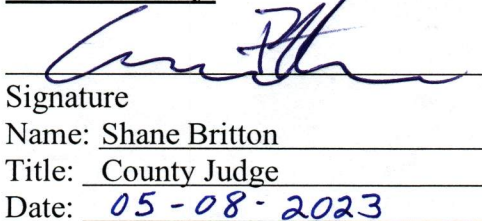 Signature
Name: Shane Britton
Title: County Judge
Date: 05-08-2023